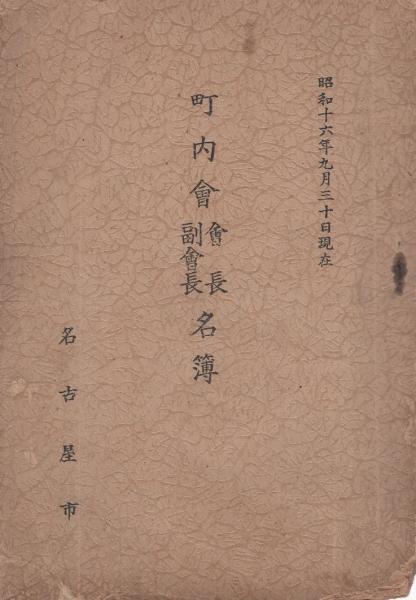 昭和十六年九月三十日現在
町内會會長副會長名簿
名古屋市